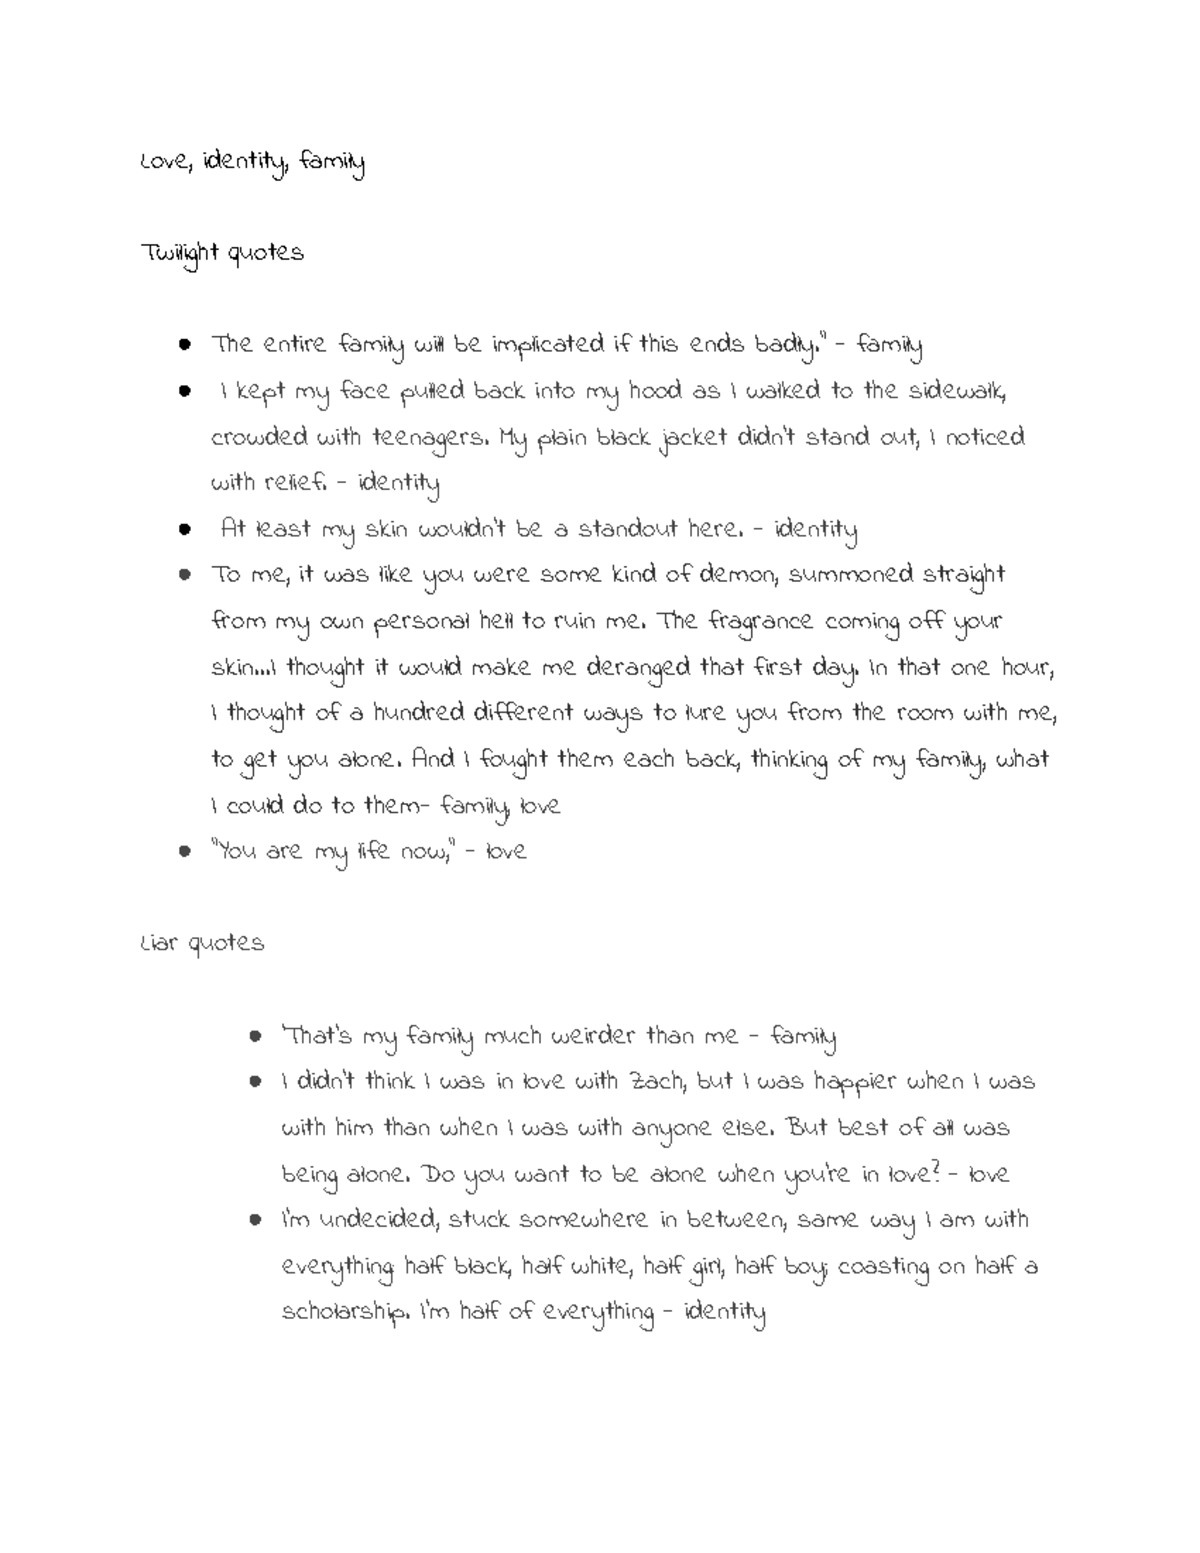 Love, identity, family
Twilight quotes
● The entire family will be implicated if this ends badly." - family
● I kept my face pulled back into my hood as I walked to the sidewalk,
crowded with teenagers. My plain black jacket didn't stand out, I noticed
with relief. - identity
● At least my skin wouldn't be a standout here. - identity
● To me, it was like you were some kind of demon, summoned straight
from my own personal hell to ruin me. The fragrance coming off your
skin...I thought it would make me deranged that first day. In that one hour,
I thought of a hundred different ways to lure you from the room with me,
to get you alone. And I fought them each back, thinking of my family, what
I could do to them- family, love
● "You are my life now," - love
Liar quotes
● 'That's my family much weirder than me - family
● I didn't think I was in love with Zach, but I was happier when I was
with him than when I was with anyone else. But best of all was
being alone. Do you want to be alone when you're in love? - love
● I'm undecided, stuck somewhere in between, same way I am with
everything: half black, half white, half girl, half boy; coasting on half a
scholarship. I'm half of everything - identity